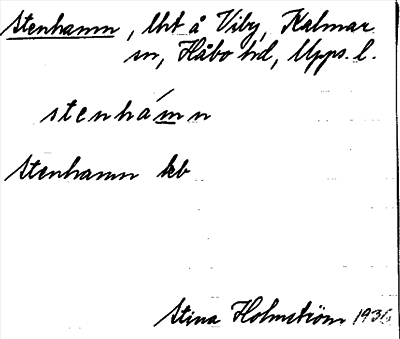 Stenhamn, lht å Viby, Kalmar
sn, Håbo hd, Upps. l.
stenhámn
Stenhamn kb
Stina Holmström 1936